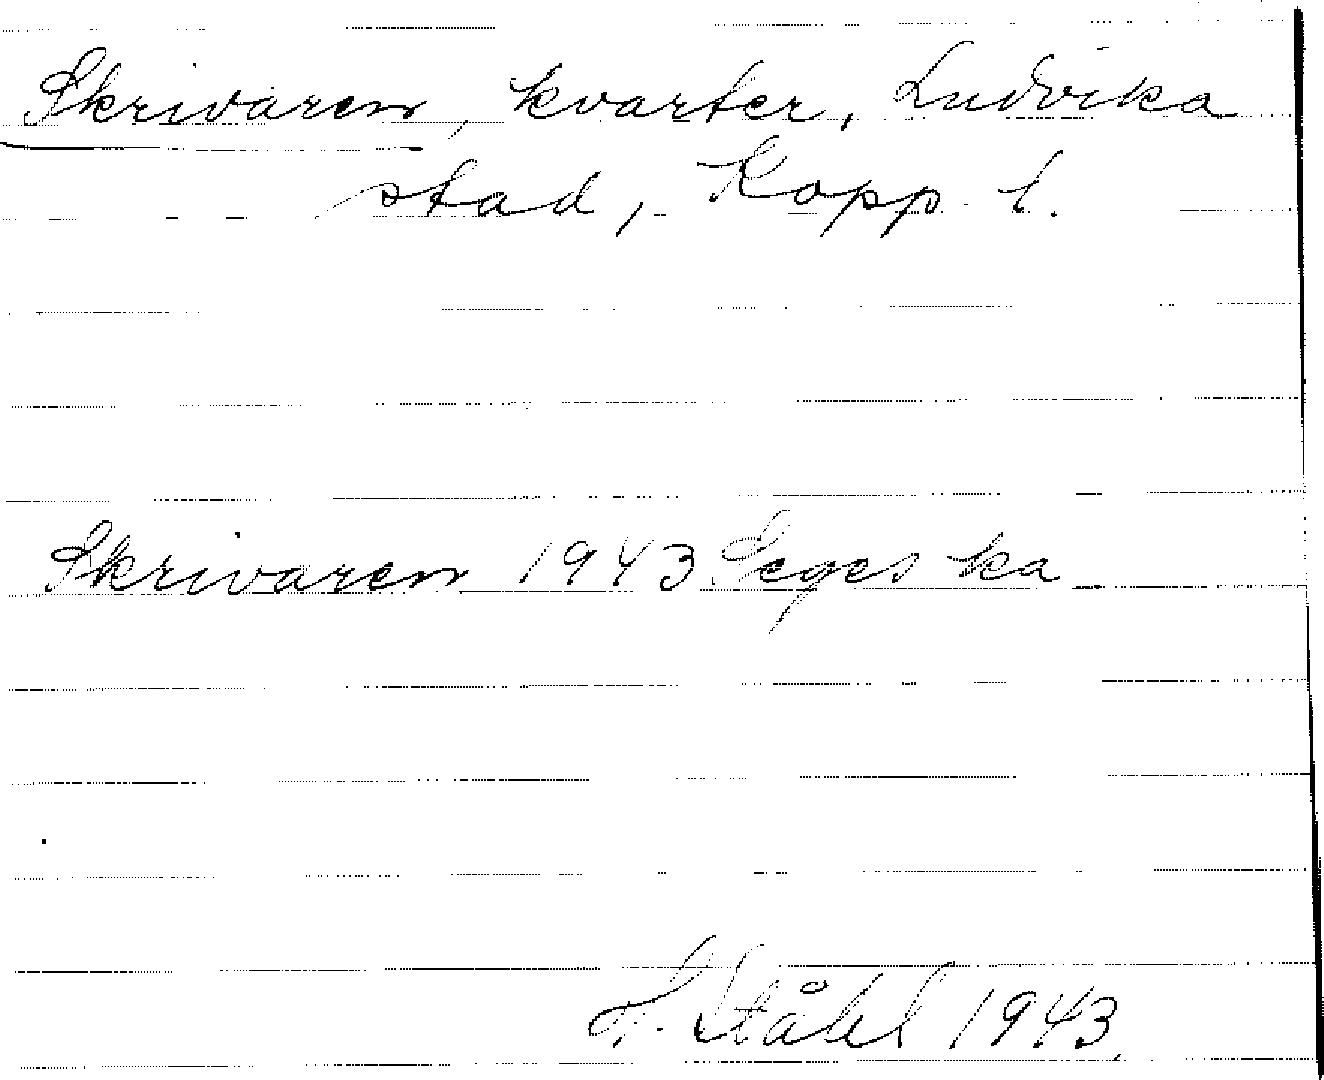 Skrivaren, kvarter, Ludvika
stad, Kopp. l.
Skrivaren 1943 Seges ka
H. Ståhl 1943